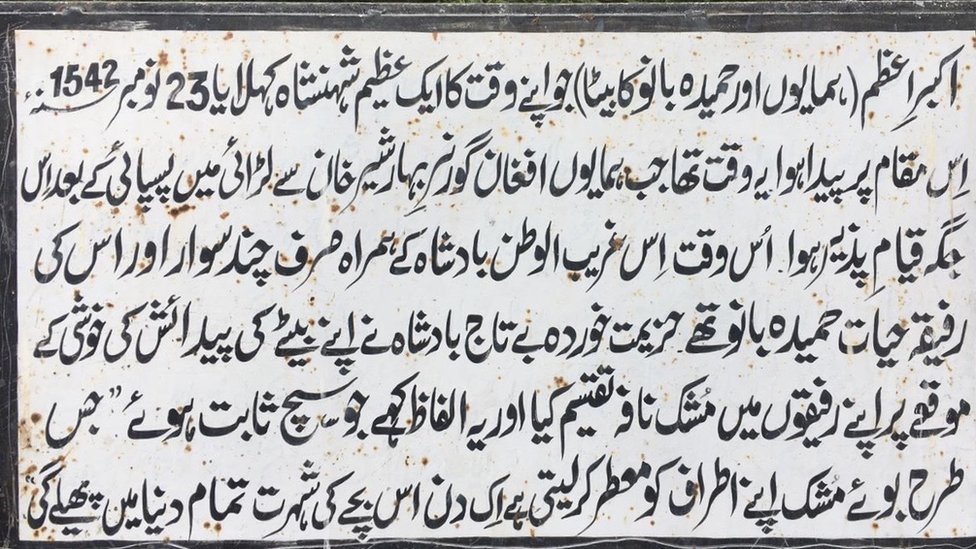 اکبرِ اعظم (ہمایوں اور حمیدہ بانو کا بیٹا) جو اپنے وقت کا ایک عظیم شہنشاہ کہلایا 23 نومبر 1542ء
اِس مقام پر پیدا ہوا یہ وقت تھا جب ہمایوں افغان گورنر بہار شیر خان سے لڑائی میں پسپائی کے بعد اس
جگہ قیامِ پذیر ہوا. اُس وقت اِس غریب الوطن بادشاہ کے ہمراہ صرف چند سوار اور اس کی
رفیقہ حیات حمیدہ بانو تھے. حزیمت خوردہ بے تاج بادشاہ نے اپنے بیٹے کی پیدائش کی خوشی کے
موقعے پر اپنے رفیقوں میں مُشک نافہ تقسیم کیا اور یہ الفاظ کہے جو سچ ثابت ہوئے ”جس
طرح بوئے مُشک اپنے اطراف کو معطر کر لیتی ہے اِک دن اس بچے کی شہرت تمام دنیا میں پھیلے گی“